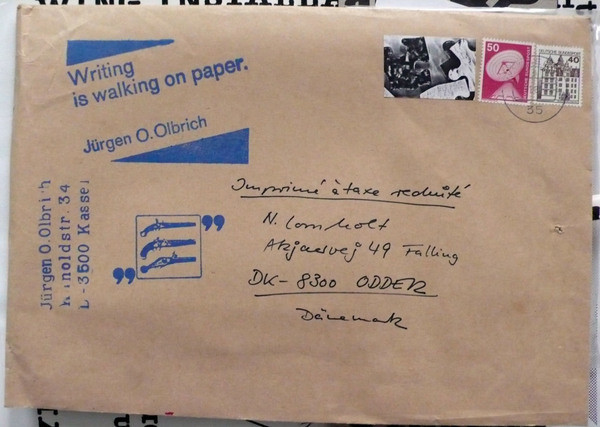 Writing
is walking on paper.
Jürgen O. Olbrich
50
DEUTSCHE BUNDESPOST
40
DEUTSCHE BUNDESPOST
35
Jürgen O. Olbrich
noldstr. 34
3500 Kassel
”
”
Imprimé à taxe reduité
N. Lomholt
49 Falling
DK-8300 ODDER
Dänemark